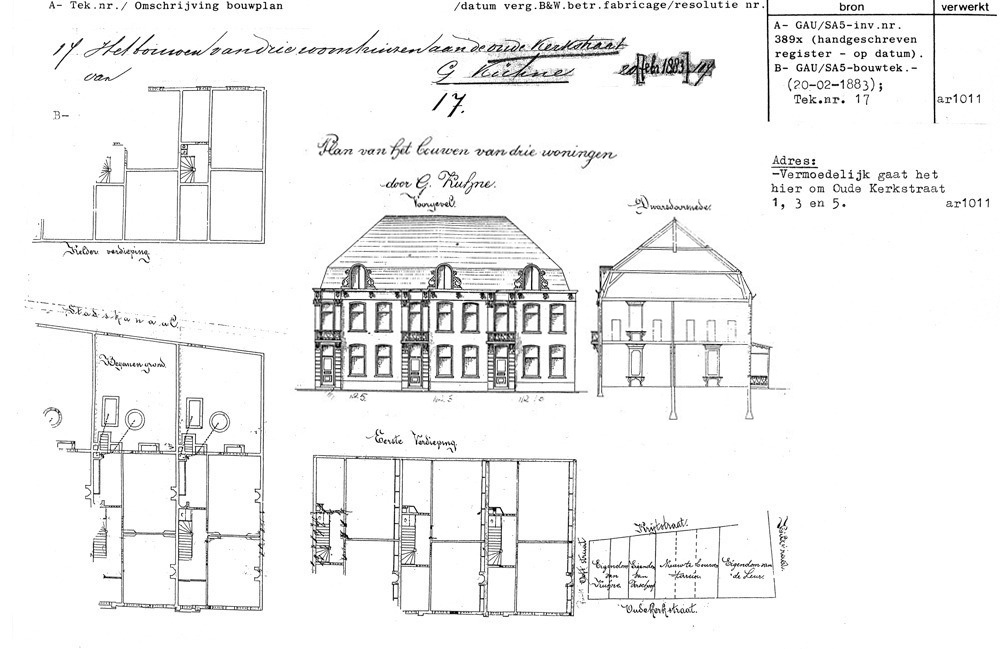 A- Tek.nr./ Omschrijving bouwplan /datum verg.B&W.betr.fabricage/resolutie nr.
bron verwerkt
17 Het bouwen van drie woonhuizen aan de oude Kerkstraat
van G Kühne 20 febr 1883
17.
A- GAU/SA5-inv.nr.
389x (handgeschreven
register - op datum).
B- GAU/SA5-bouwtek.-
(20-02-1883);
Tek.nr. 17 ar1011
Adres:
-Vermoedelijk gaat het
hier om Oude Kerkstraat
1, 3 en 5. ar1011
B-
Plan van het bouwen van drie woningen
door G. Kuhne.
Voorgevel.
Dwarsdoorsnede.
Kelder verdieping
Stadskanaal.
Beganen grond
No 5
Eerste Verdieping.
Krijtstraat.
Eigendom
van
Kuhne
van
Nieuw te bouwen
Terrein
Eigendom van
de Leur.
Oudekerkstraat.